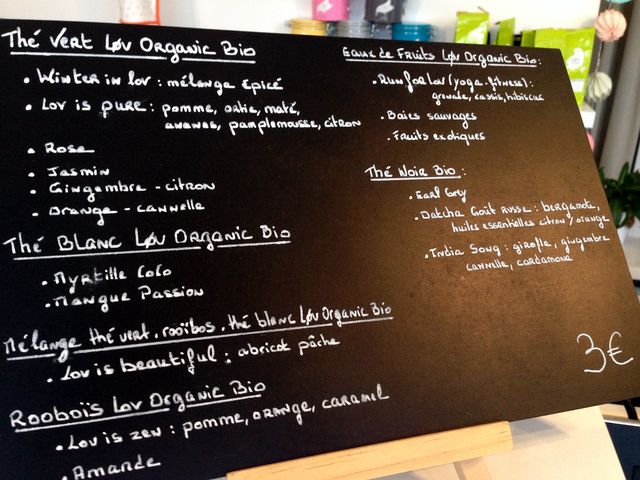 Thé Vert Løv Organic Bio
• Winter in lov : mélange épicé
• Lov is pure : pomme, ortie, maté,
ananas, pamplemousse, citron
• Rose
• Jasmin
• Gingembre - citron
• Orange - cannelle
Thé Blanc Løv Organic Bio
• Myrtille Coco
• Mangue Passion
Mélange thé vert. rooïbos. thé blanc Løv Organic Bio
• Lov is beautiful : abricot pâche
Rooboïs Lov Organic Bio
• Lov is zen : pomme, orange, caramel
• Amande
Eaux de Fruits Løv Organic Bio :
• Run for Lov (yoga-fitness) :
grenade, cassis, hibiscus
• Baies sauvages
• Fruits exotiques
Thé Noir Bio :
• Earl Grey
• Datcha Goût russe : bergamote,
huiles essentielles citron / orange
• India Song : girofle, gingembre
cannelle, cardamone
3€